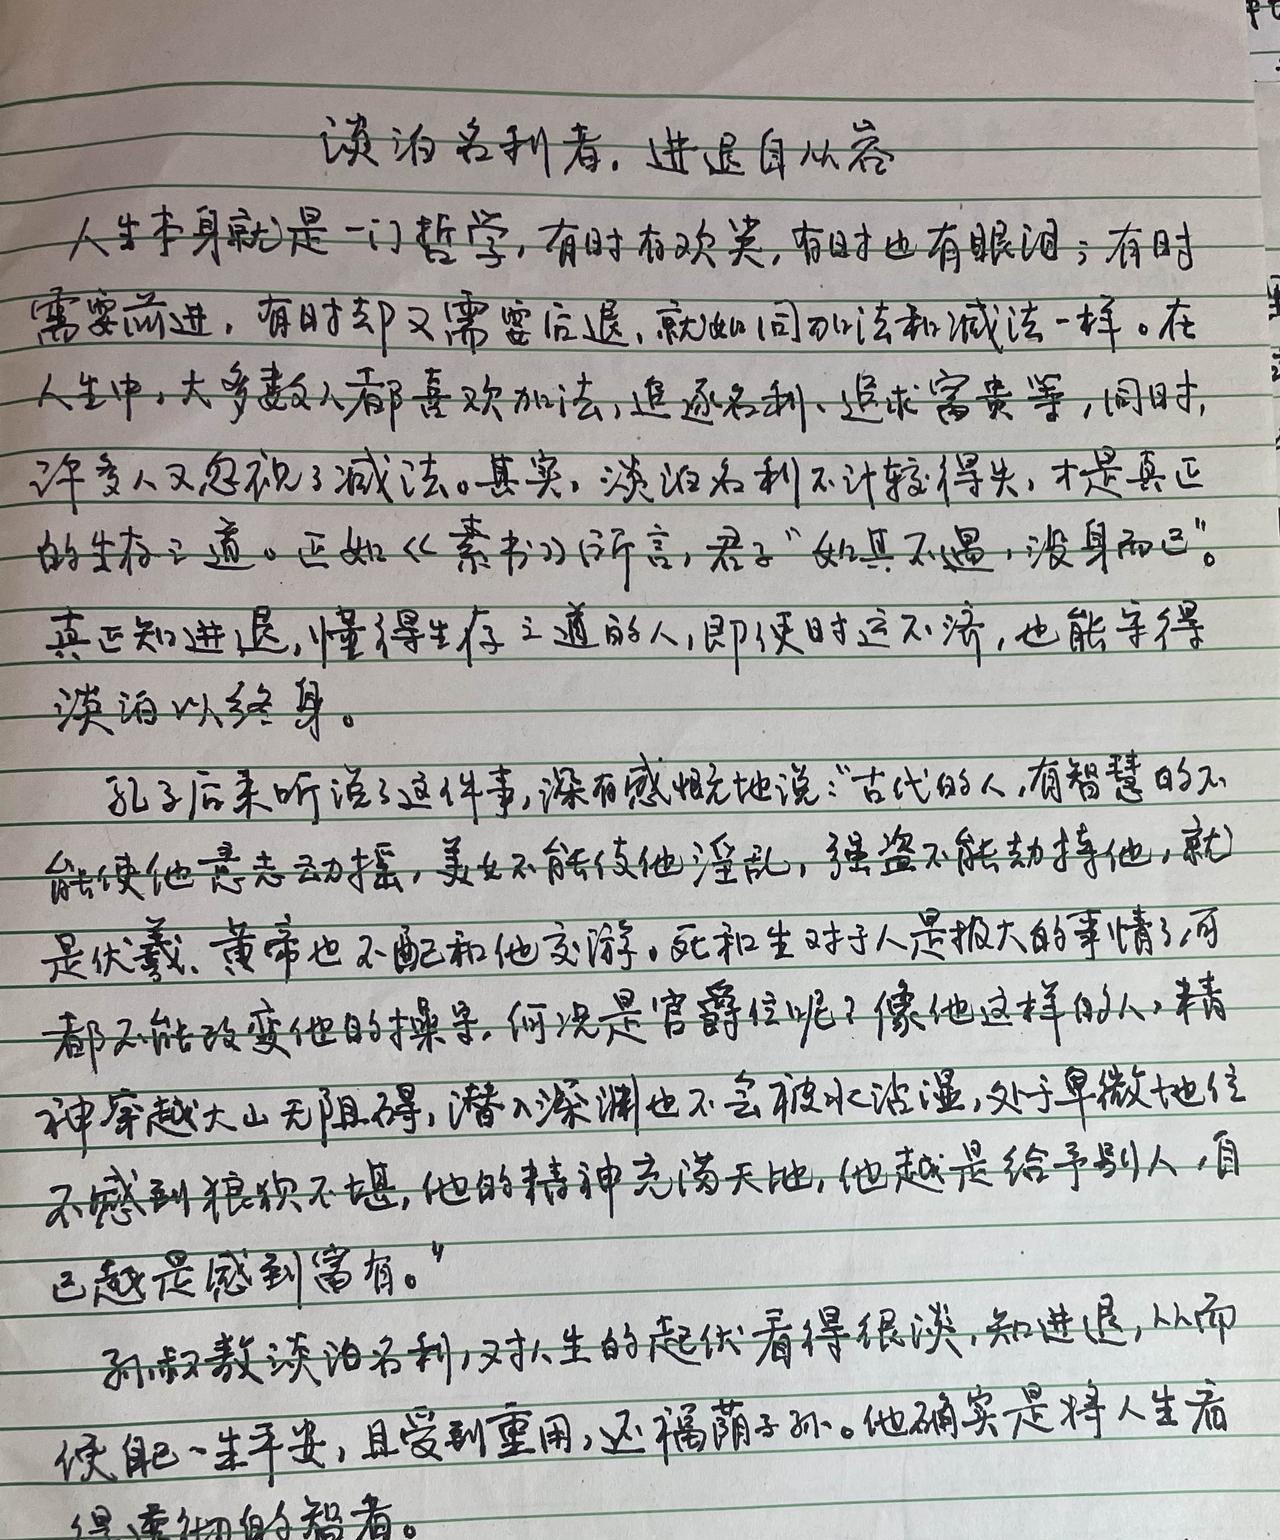 淡泊名利者,进退自从容
人生本身就是一门哲学,有时有欢笑,有时也有眼泪;有时
需要前进,有时却又需要后退,就如同加法和减法一样。在
人生中,大多数人都喜欢加法,追逐名利、追求富贵等,同时,
许多人又忽视了减法。其实,淡泊名利不计较得失,才是真正
的生存之道。正如《素书》所言,君子“如其不遇,没身而已”。
真正知进退,懂得生存之道的人,即使时运不济,也能守得
淡泊以终身。
孔子后来听说了这件事,深有感慨地说:“古代的人,有智慧的不
能使他意志动摇,美女不能使他淫乱,强盗不能劫持他,就
是伏羲、黄帝也不配和他交游。死和生对于人是极大的事情了,可
都不能改变他的操守,何况是官爵位呢?像他这样的人,精
神穿越大山无阻碍,潜入深渊也不会被水沾湿,处于卑微地位
不感到狼狈不堪,他的精神充满天地,他越是给予别人,自
己越是感到富有。”
孙叔敖淡泊名利,对人生的起伏看得很淡,知进退,从而
使自己一生平安,且受到重用,还福荫子孙。他确实是将人生看
得透彻的智者。